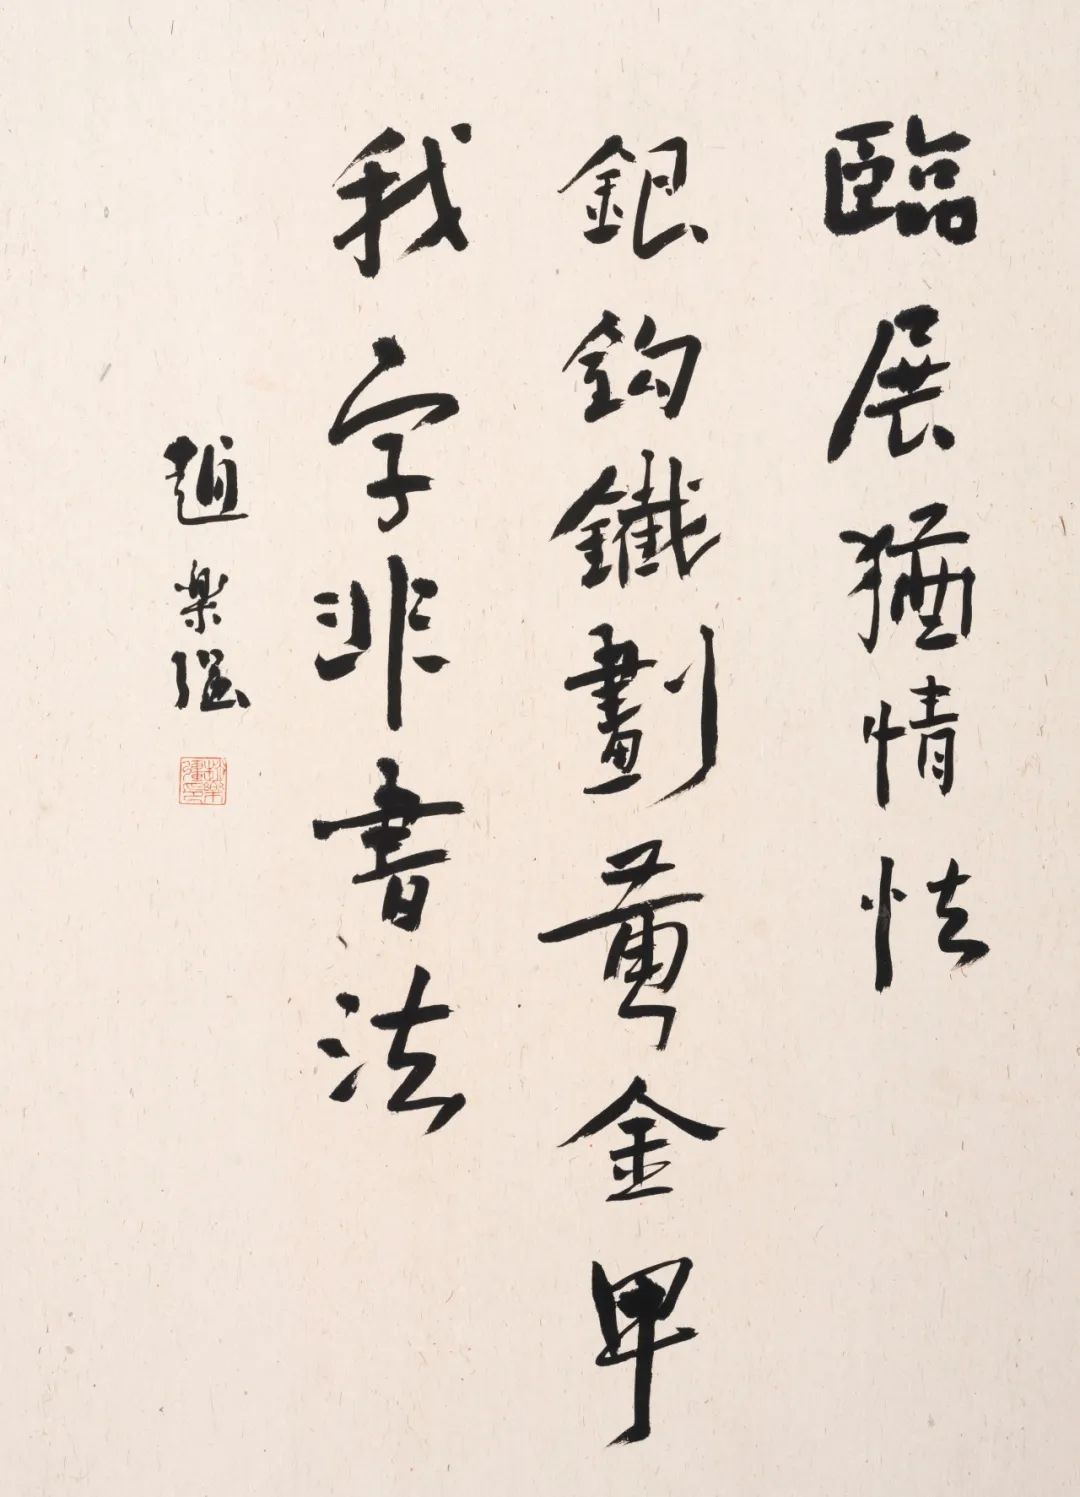 臨展猶情怯
銀鈎鐵劃黃金甲
我字非書法
趙樂强